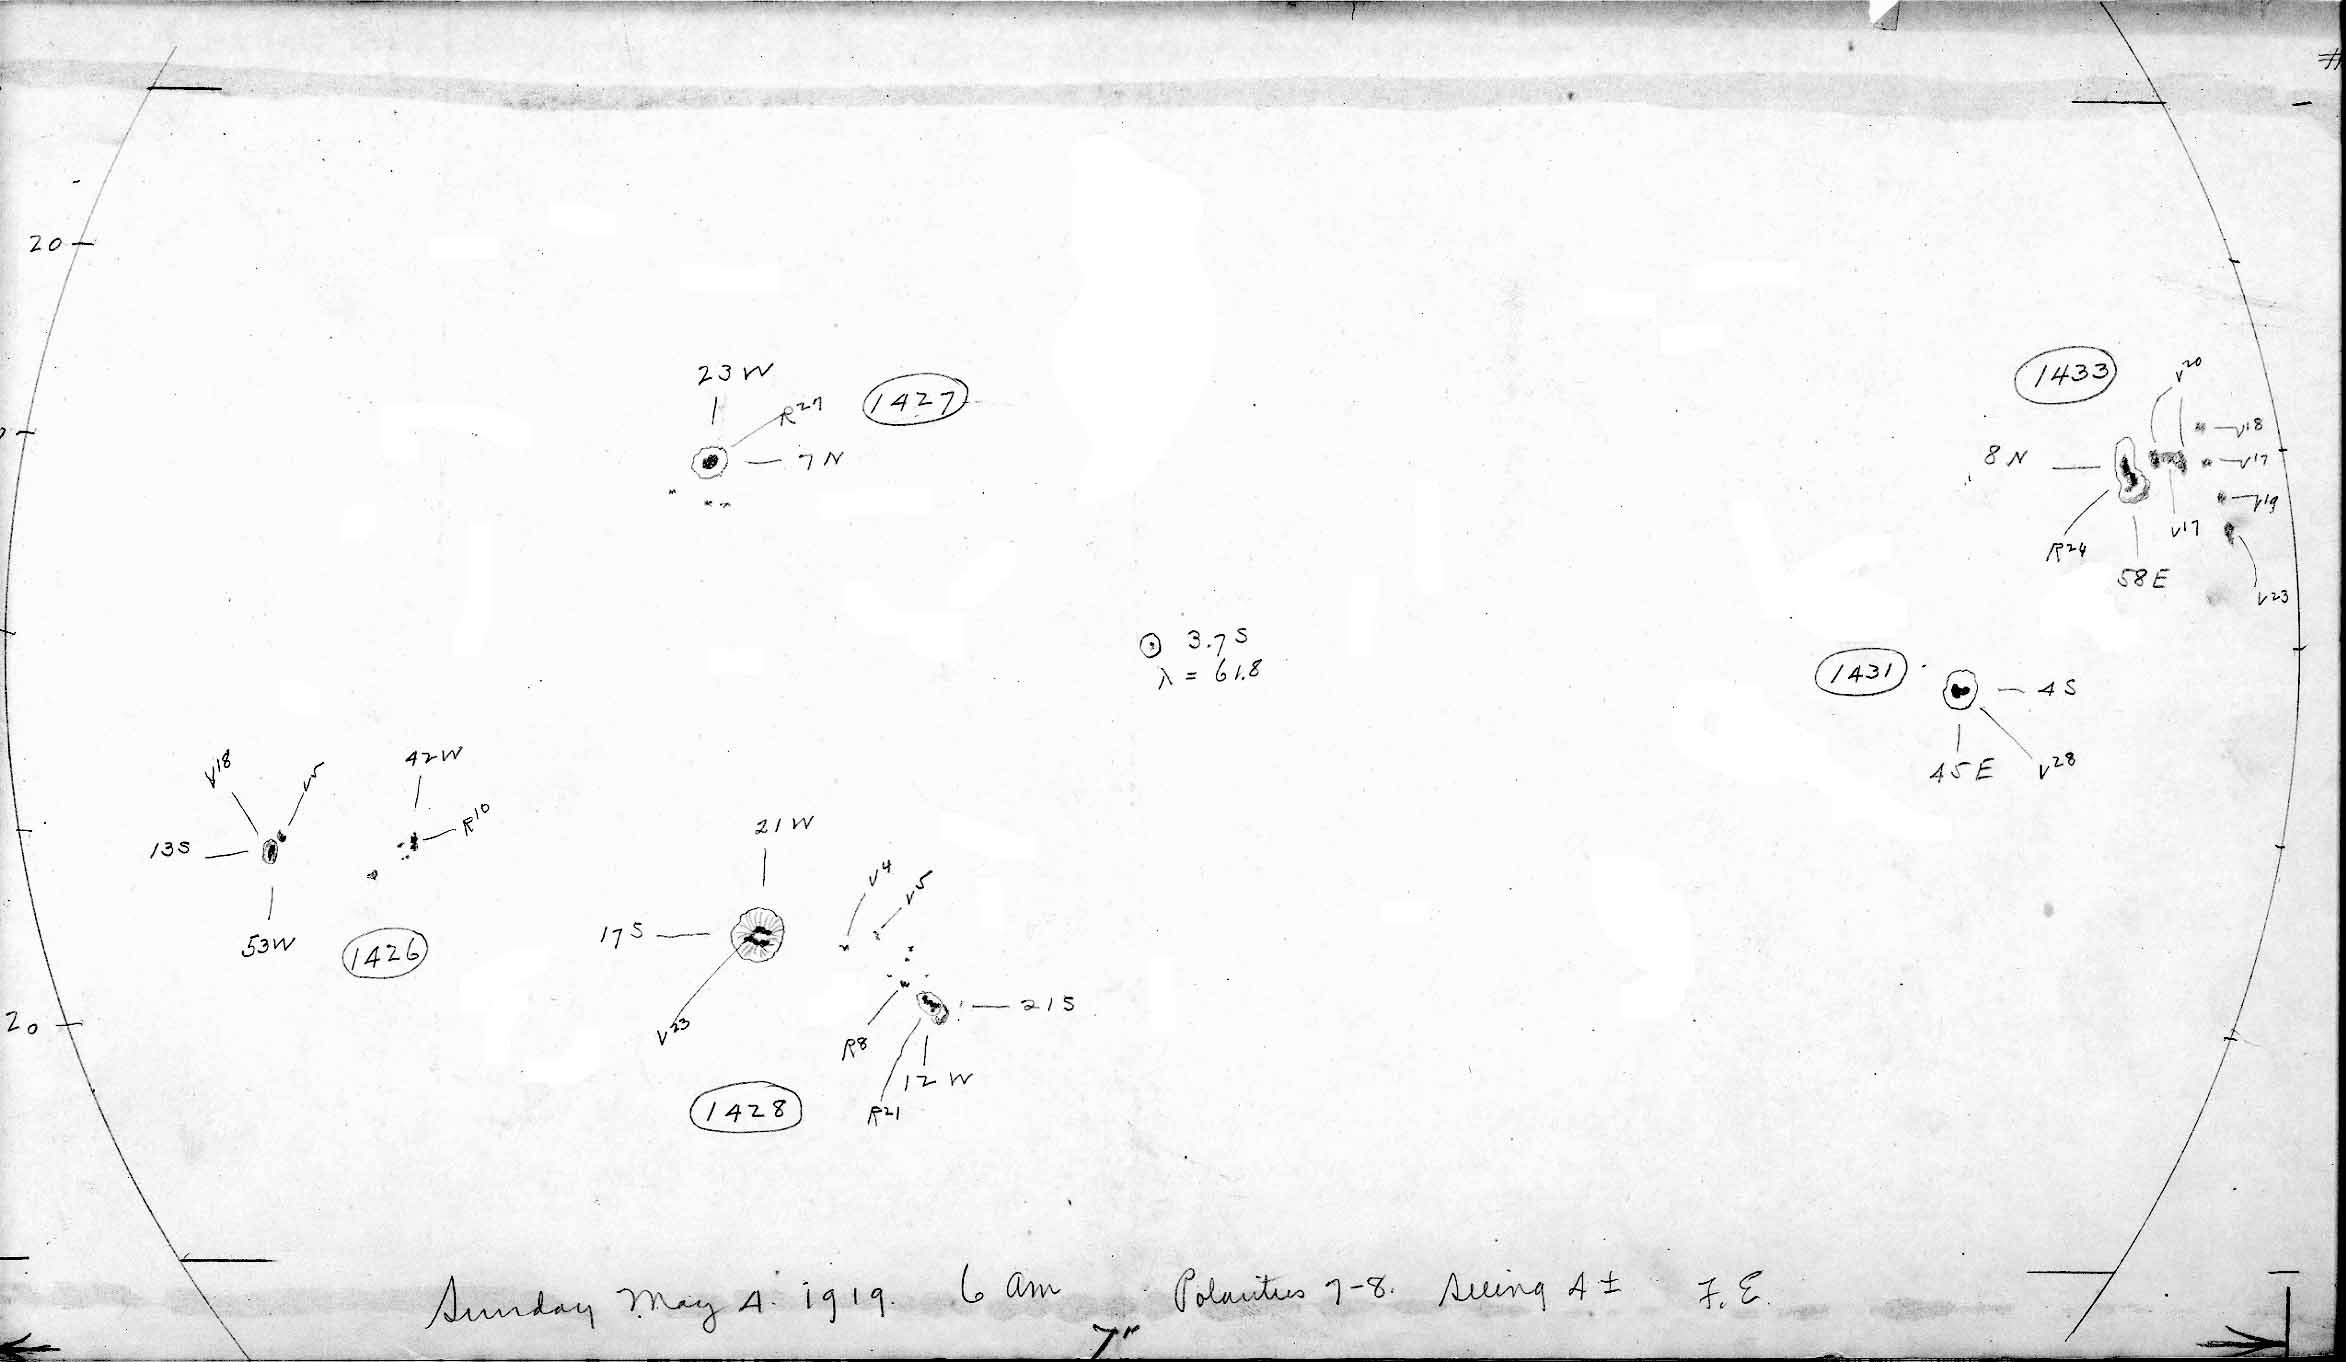 #
20
23 W
R27
1427
7 N
1433
V20
V18
8 N
V17
V19
R24
V17
58 E
V23
⊙ 3.7 S
λ = 61.8
1431
4 S
45 E
V28
V18
V5
42 W
R10
13 S
53 W
1426
21 W
V4
V5
17 S
V23
R8
21 S
12 W
R21
1428
20
Sunday May 4. 1919. 6 am Polarities 7-8. Seeing 4 ± F. E.
7"